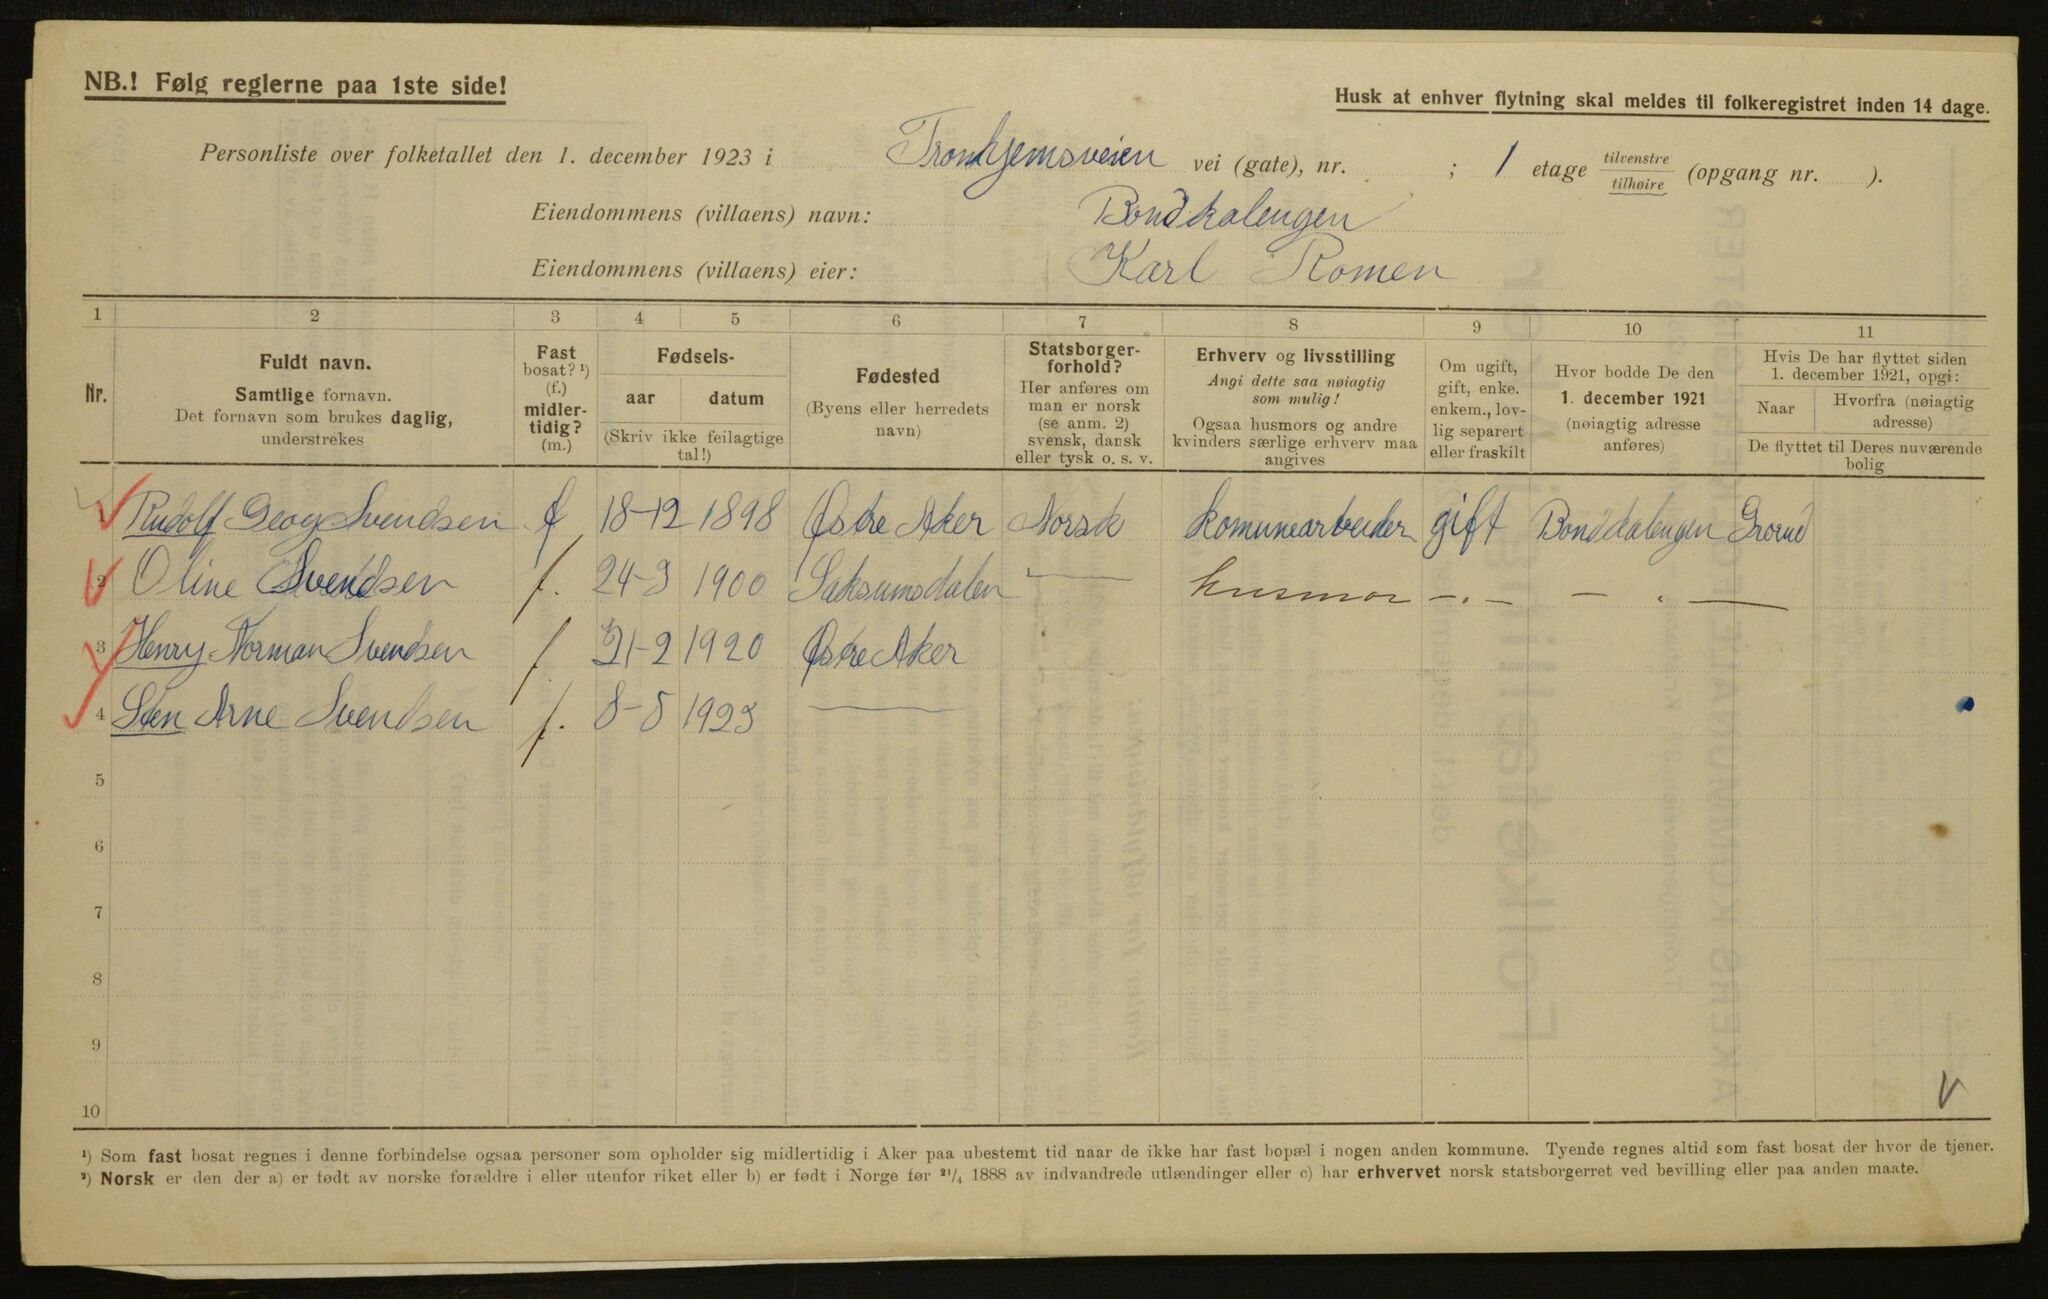 NB.! Følg reglerne paa 1ste side!
Husk at enhver flytning skal meldes til folkeregistret inden 14 dage.
Personliste over folketallet den 1. december 1923 i Tronhjemsveien vei (gate), nr. ; 1 etage tilvenstre / tilhøire (opgang nr. ).
Eiendommens (villaens) navn: Bonddalengen
Eiendommens (villaens) eier: Karl Romen
1 2 3 4 5 6 7 8 9 10 11
Nr.
Fuldt navn.
Samtlige fornavn.
Det fornavn som brukes daglig,
understrekes
Fast
bosat? ¹)
(f.)
midler-
tidig?
(m.)
Fødsels-
aar datum
(Skriv ikke feilagtige
tal!)
Fødested
(Byens eller herredets
navn)
Statsborger-
forhold?
Her anføres om
man er norsk
(se anm. 2)
svensk, dansk
eller tysk o. s. v.
Erhverv og livsstilling
Angi dette saa nøiagtig
som mulig!
Ogsaa husmors og andre
kvinders særlige erhverv maa
angives
Om ugift,
gift, enke.
enkem., lov-
lig separert
eller fraskilt
Hvor bodde De den
1. december 1921
(nøiagtig adresse
anføres)
Hvis De har flyttet siden
1. december 1921, opgi:
Naar Hvorfra (nøiagtig
adresse)
De flyttet til Deres nuværende
bolig
1 Rudolf Georg Svendsen f 18-12 1898 Østre Aker Norsk komunearbeider gift Bonddalengen Grorud
2 Oline Svendsen f. 24-3 1900 Saksumsdalen — husmor -.- - . -
3 Henry Norman Svendsen f 21-2 1920 Østre Aker
4 Sten Arne Svendsen f. 8-5 1923 —
5
6
7
8
9
10
¹) Som fast bosat regnes i denne forbindelse ogsaa personer som opholder sig midlertidig i Aker paa ubestemt tid naar de ikke har fast bopæl i nogen anden kommune. Tyende regnes altid som fast bosat der hvor de tjener.
²) Norsk er den der a) er født av norske forældre i eller utenfor riket eller b) er født i Norge før ²¹/₄ 1888 av indvandrede utlændinger eller c) har erhvervet norsk statsborgerret ved bevilling eller paa anden maate.